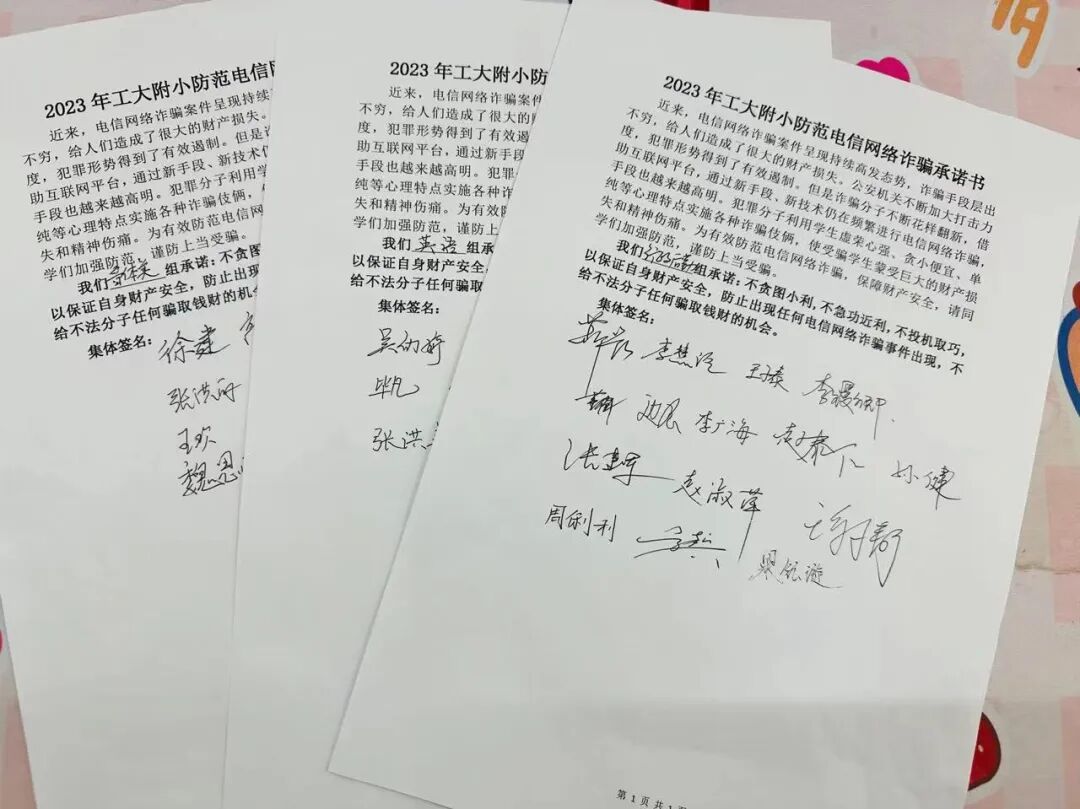 2023 年工大附小防范电信网
近来，电信网络诈骗案件呈现持续
不穷，给人们造成了很大的财产损失。
度，犯罪形势得到了有效遏制。但是诈
助互联网平台，通过新手段、新技术仍
手段也越来越高明。犯罪分子利用学
纯等心理特点实施各种诈骗伎俩，
失和精神伤痛。为有效防范电信网
学们加强防范，谨防上当受骗。
我们 组承诺：不贪图小利
以保证自身财产安全，防止出现
给不法分子任何骗取钱财的机会
集体签名：
徐建
张洪
王欢
魏思
2023 年工大附小防
近来，电信网络诈骗案件
不穷，给人们造成了很大的
度，犯罪形势得到了有效
助互联网平台，通过新手
手段也越来越高明。犯罪
纯等心理特点实施各种诈
失和精神伤痛。为有效
学们加强防范，谨防上
我们 英语 组承诺
以保证自身财产安全，
给不法分子任何骗取
集体签名：
毕凡
张洪
2023 年工大附小防范电信网络诈骗承诺书
近来，电信网络诈骗案件呈现持续高发态势，诈骗手段层出
不穷，给人们造成了很大的财产损失。公安机关不断加大打击力
度，犯罪形势得到了有效遏制。但是诈骗分子不断花样翻新，借
助互联网平台，通过新手段、新技术仍在频繁进行电信网络诈骗，
手段也越来越高明。犯罪分子利用学生虚荣心强、贪小便宜、单
纯等心理特点实施各种诈骗伎俩，使受骗学生蒙受巨大的财产损
失和精神伤痛。为有效防范电信网络诈骗，保障财产安全，请同
学们加强防范，谨防上当受骗。
我们 组承诺：不贪图小利，不急功近利，不投机取巧，
以保证自身财产安全，防止出现任何电信网络诈骗事件出现，不
给不法分子任何骗取钱财的机会。
集体签名：
李慧
李广海 孙健
张建军 赵淑萍
周俐利
第 1 页 共 1 页